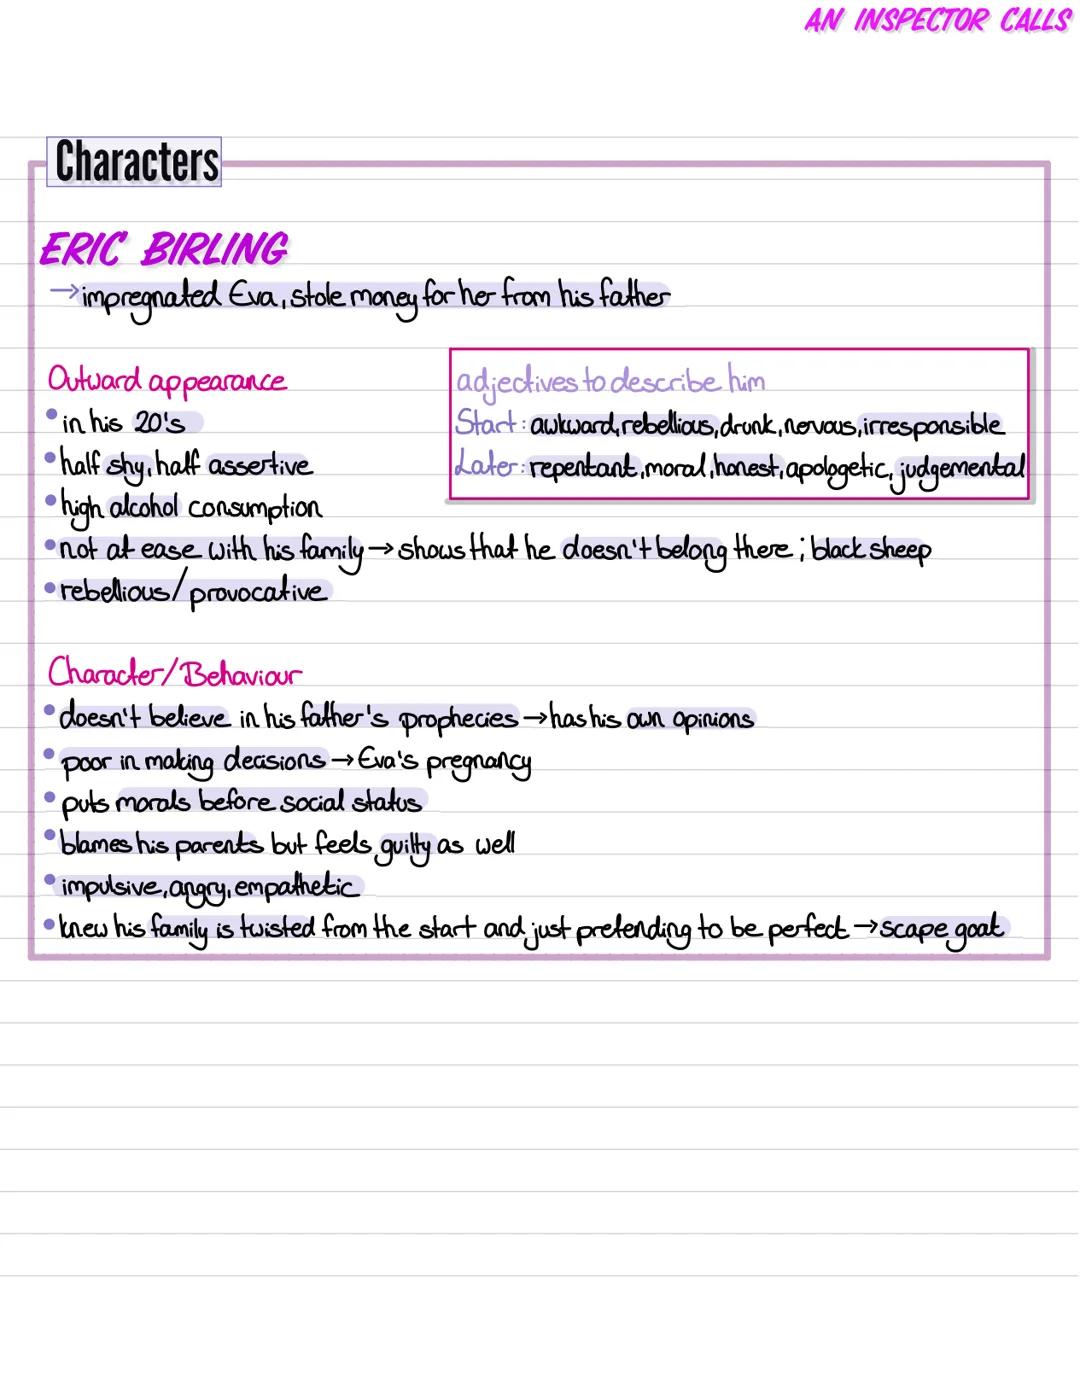 AN INSPECTOR CALLS
Characters
ERIC BIRLING
→impregnated Eva, stole money for her from his father
Outward appearance
• in his 20's
• half shy, half assertive
• high alcohol consumption
• not at ease with his family → shows that he doesn't belong there; black sheep
• rebellious/provocative
adjectives to describe him
Start: awkward, rebellious, drunk, nervous, irresponsible
Later: repentant, moral, honest, apologetic, judgemental
Character/Behaviour
• doesn't believe in his father's prophecies → has his own opinions
• poor in making decisions → Eva's pregnancy
• puts morals before social status
• blames his parents but feels guilty as well
• impulsive, angry, empathetic
• knew his family is twisted from the start and just pretending to be perfect → scape goat